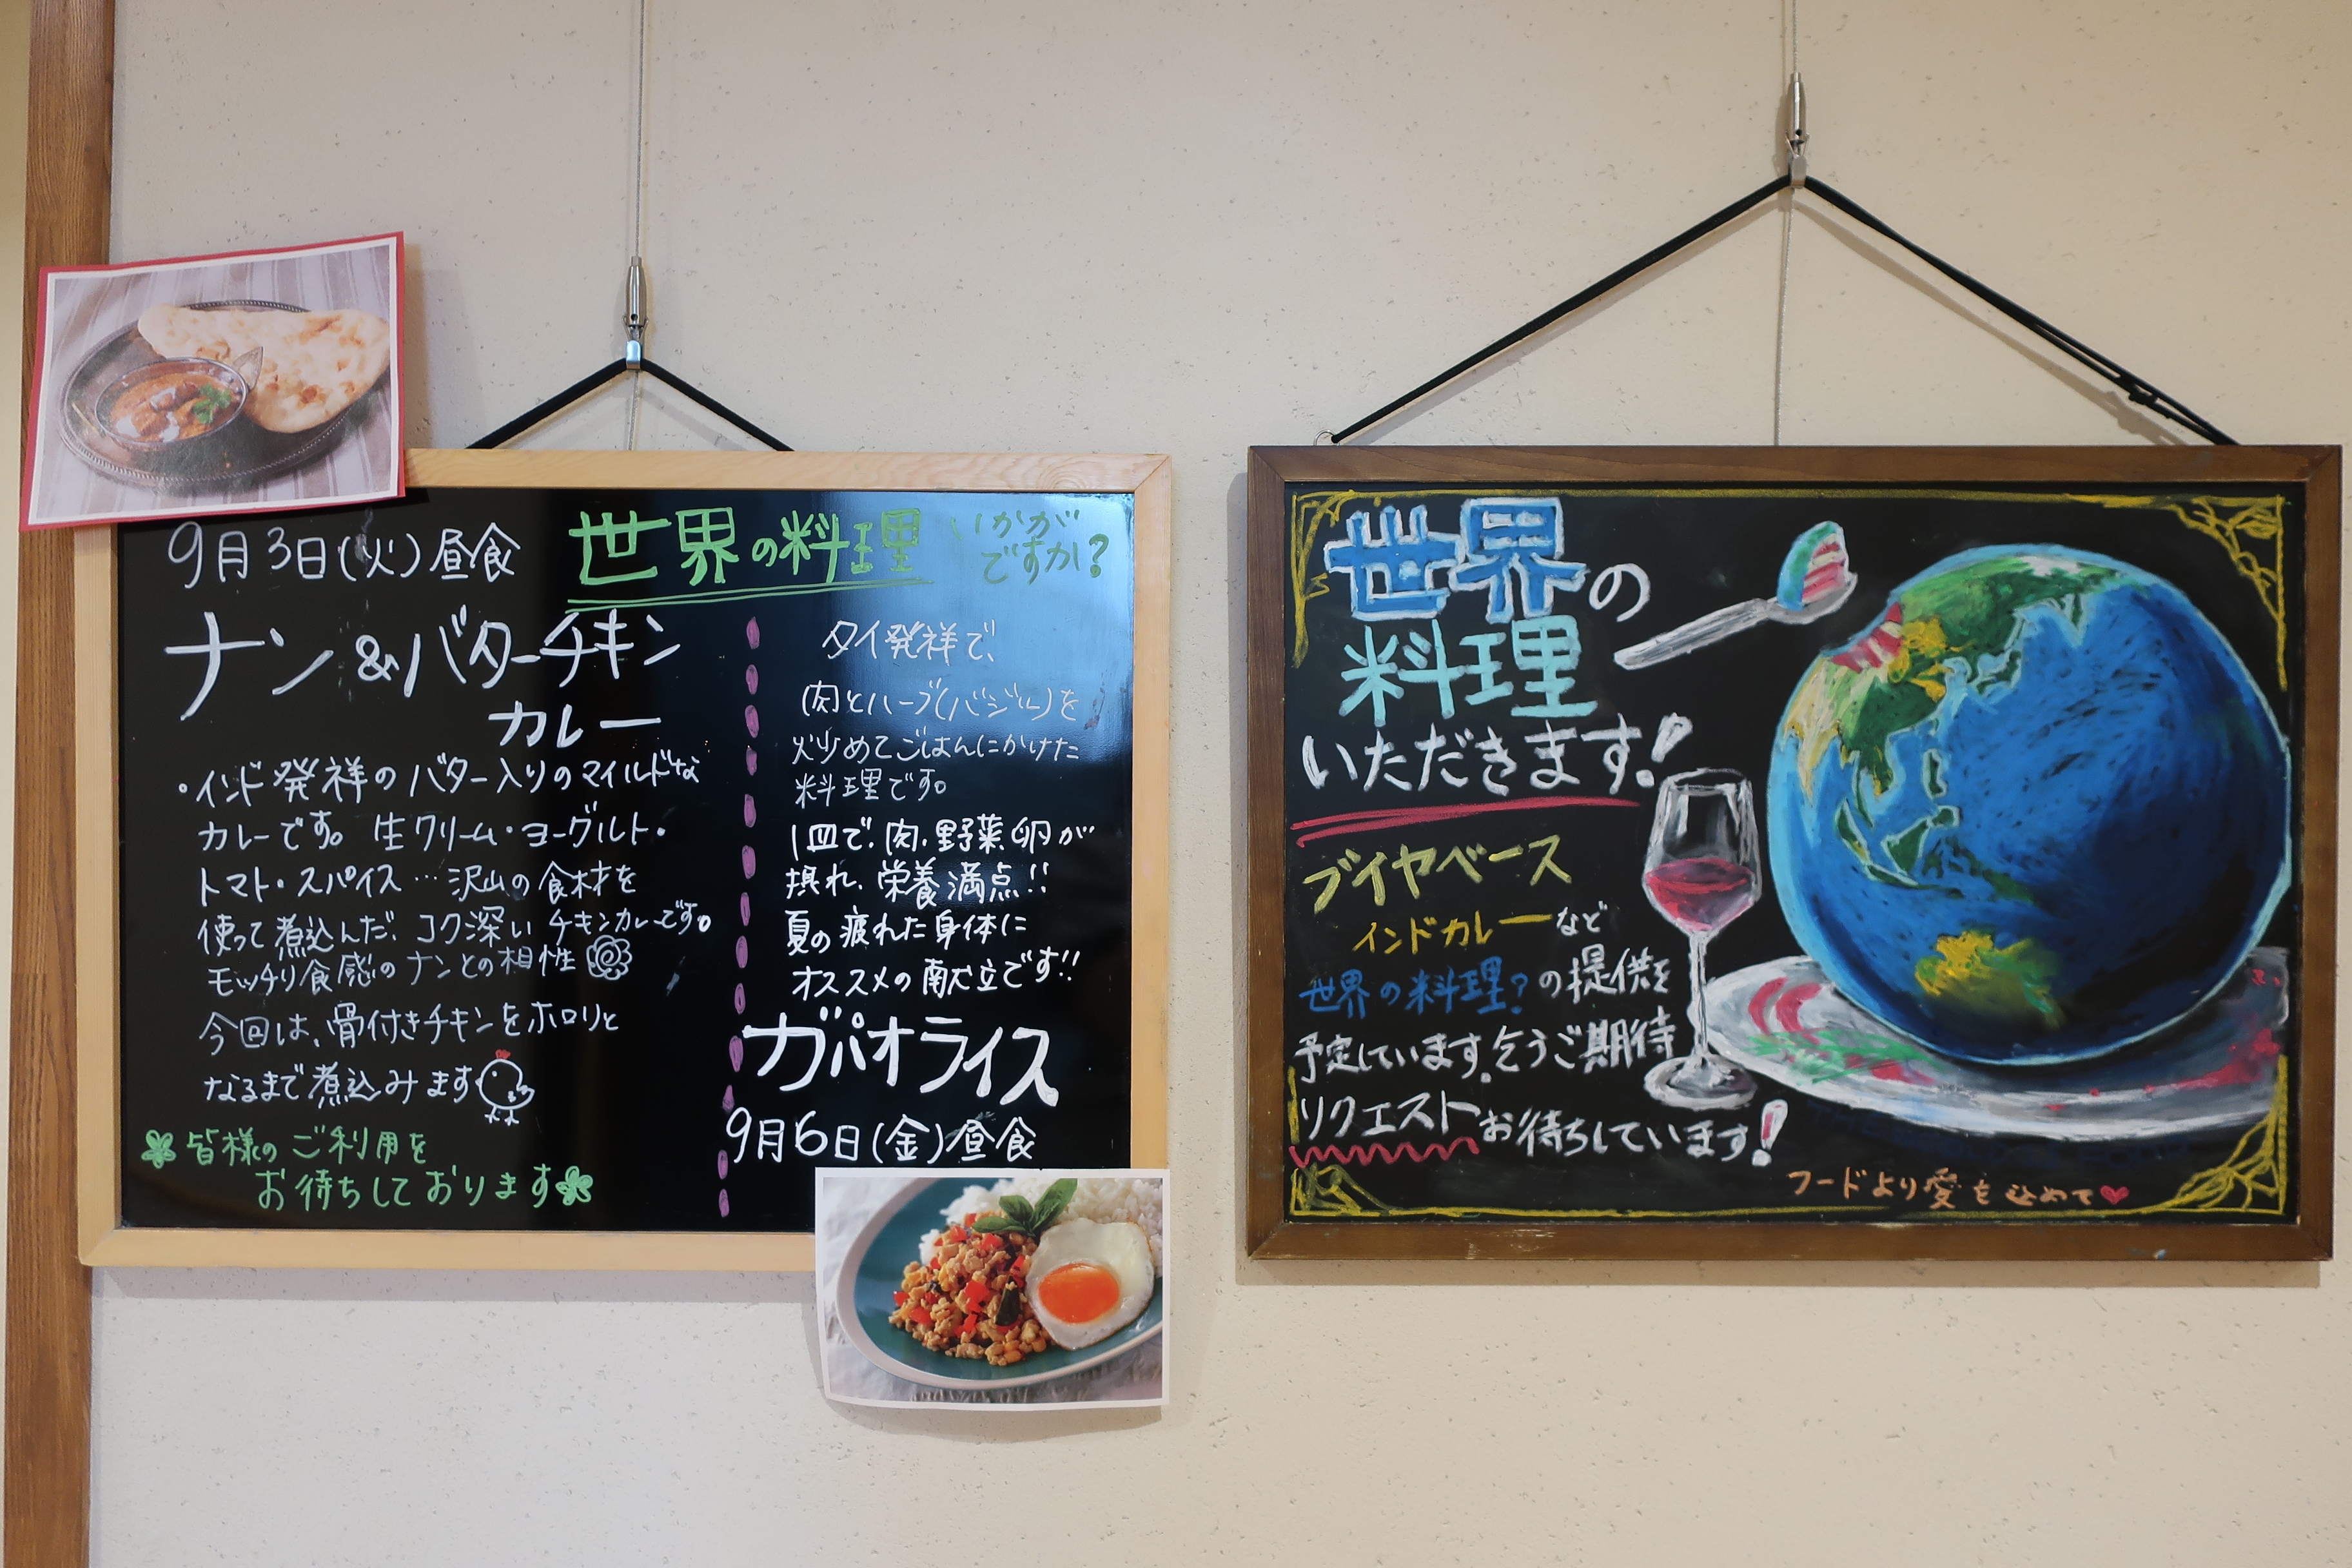 9月3日(火)昼食
世界の料理
いかが
ですか?
ナン&バターチキン
カレー
・インド発祥のバター入りのマイルドな
カレーです。生クリーム・ヨーグルト・
トマト・スパイス…沢山の食材を
使って煮込んだ、コク深いチキンカレーです。
モッチリ食感のナンとの相性
今回は、骨付きチキンをホロリと
なるまで煮込みます
皆様のご利用を
お待ちしております
タイ発祥で、
肉とハーブ(バジル)を
炒めてごはんにかけた
料理です。
1皿で、肉、野菜、卵が
摂れ、栄養満点!!
夏の疲れた身体に
オススメの献立です!!
ガパオライス
9月6日(金)昼食
世界の
料理
いただきます!
ブイヤベース
インドカレーなど
世界の料理?の提供を
予定しています。乞うご期待
リクエストお待ちしています!
フードより愛を込めて